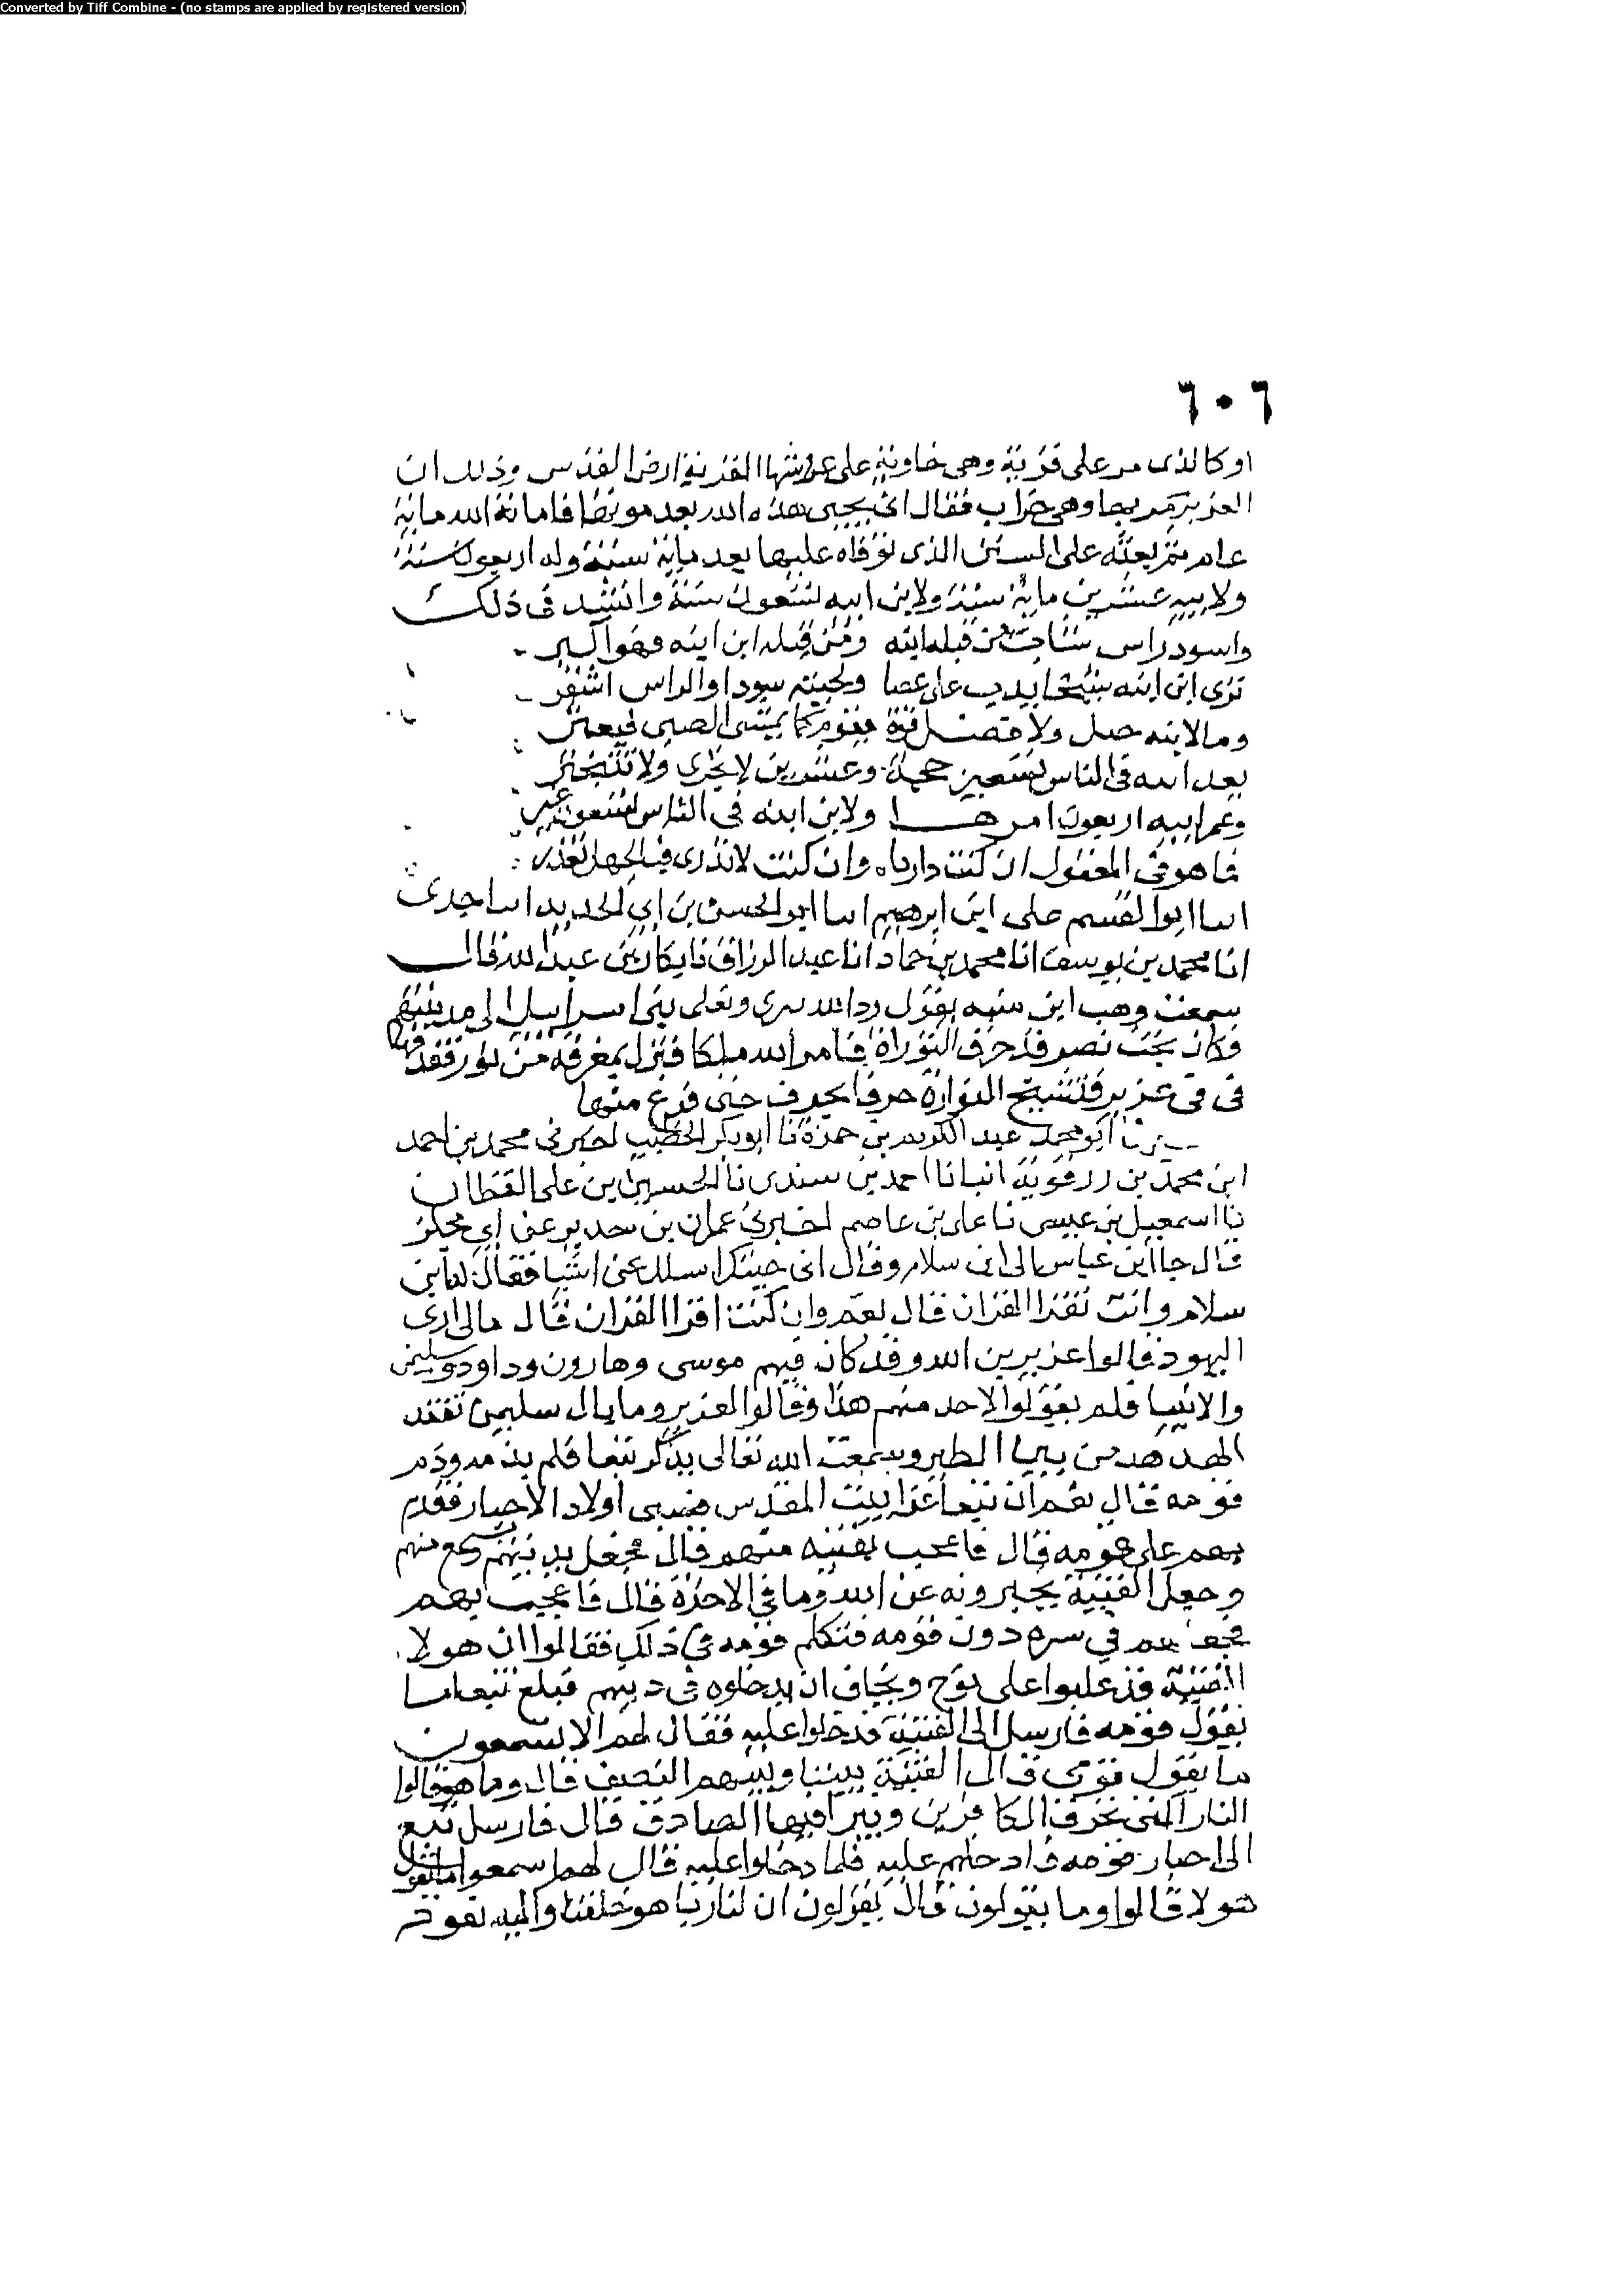 Converted by Tiff Combine - (no stamps are applied by registered version)
٦٠٦
او كالذى مر على قرية وهى خاوية على عروشها القرية ارض القدس وذلك ان
العزير مر بها وهى خراب فقال انى يحيى هذه الله بعد موتها فاماته الله ماية
عام ثم بعثه على السن الذى توفاه عليها بعد ماية سنة وله اربعون سنة
ولابنه عشرين ماية سنة ولابن ابنه تسعون سنة وانشد فى ذلك
واسود راس شاب من قبله ابنه ومن قبله ابن ابنه فهو اكبر
ترى ابن ابنه شيخا يدب على عصا ولحيته سودا والراس اشقر
وما لابنه حيل ولا فضل قوة يقوم كما يمشى الصبى فيعثر
يعد ابنه فى الناس تسعين حجة وعشرين لا يجرى ولا يتبختر
وعمر ابيه اربعون امرها ولابن ابنه فى الناس تسعون غبر
فما هو فى المعقول ان كنت داريا وان كنت لا تدرى فبالجهل تعذر
انبا ابو القسم على ابن ابرهيم انبا ابو الحسن بن ابى الحديد انبا جدى
انا محمد بن يوسف انا محمد بن حماد انا عبد الرزاق نا بكار بن عبد الله قال
سمعت وهب ابن منبه يقول رد الله بنى اسراييل الى مدينتهم
وكان بخت نصر قد حرق التوراة فامر الله ملكا فنزل بمغرفة من نور فقذفها
فى فى عزير فنسخ التوراة حرفا بحرف حتى فرغ منها
ابو محمد عبد الكريم بن حمزة نا ابو بكر الخطيب اخبرنى محمد بن احمد
ابن محمد بن رزقويه انبانا احمد بن سندى نا الحسن بن على القطان
نا اسمعيل بن عيسى نا على بن عاصم اخبرنى عمران بن حدير عن ابى مجلز
قال جا ابن عباس الى ابن سلام وقال انى جيتك اسلك عن اشيا فقال له ابن
سلام وانت تقرا القران قال نعم وان كنت اقرا القران قال مالى ارى
اليهود قالوا عزير بن الله وقد كان فيهم موسى وهارون وداود وسليمن
والانبيا فلم يقولوا لاحد منهم هذا وقالوا لعزير وما بال سليمن تفقد
الهدهد من بين الطير وسمعت الله تعالى يذكر تبعا فلم يذمه وذم
قومه قال نعم ان تبعا غزا بيت المقدس فسبى اولاد الاحبار فقدم
بهم على قومه قال فاعجب بفتية منهم قال فجعل يدنيهم ويسمع منهم
وجعل الفتية يخبرونه عن الله وما فى الاخرة قال فاعجب بهم
فجعلهم فى سره دون قومه فتكلم قومه فى ذلك فقالوا ان هولا
الفتية قد غلبوا على تبع ونخاف ان يدخلوه فى دينهم فبلغ تبعا ما
يقول قومه فارسل الى الفتية فدخلوا عليه فقال لهم الا تسمعون
ما يقول قومى قال الفتية بيننا وبينهم النصف قال وما هو قالوا
النار التى تحرق الكافرين ويبرا فيها الصادق قال فارسل تبع
الى احبار قومه فادخلهم عليه فلما دخلوا عليه قال لهم اسمعوا ما يقول
هولا قالوا وما يقولون قال يقولون ان لنا ربا هو خلقنا واليه نعود